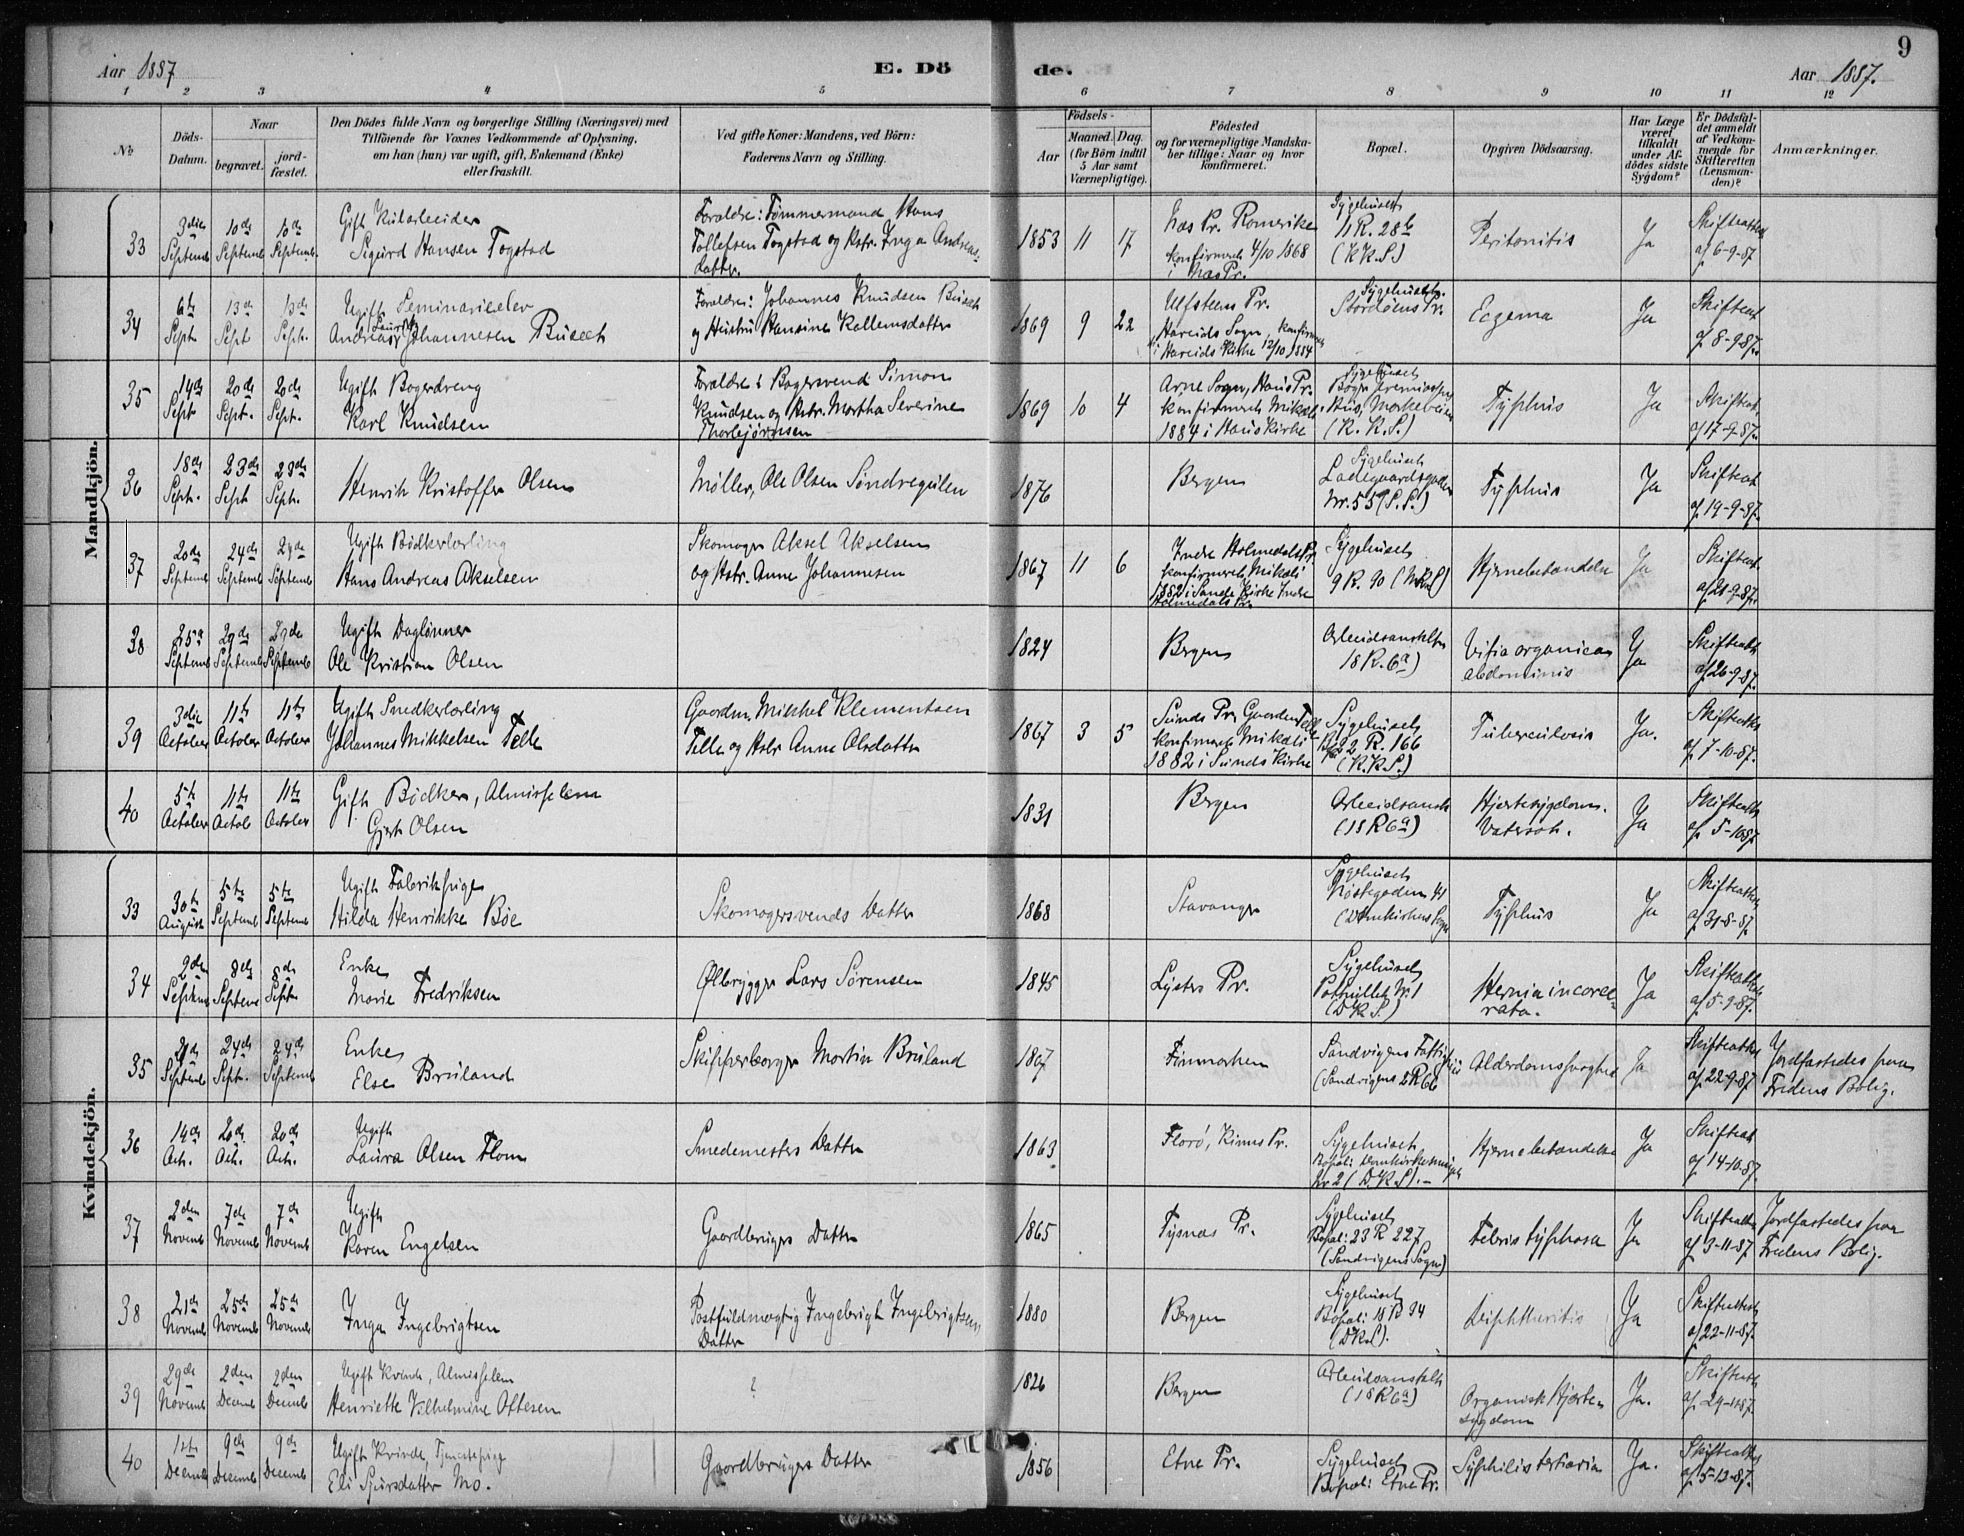 Aar 1887
E. Dö
de.
Aar 1887.
9
1 2 3 4 5 6 7 8 9 10 11 12
No.
Döds-Datum.
Naar
begravet.
jord-fæstet.
Den Dödes fulde Navn og borgerlige Stilling (Næringsvei) med
Tilföiende for Voxnes Vedkommende af Oplysning,
om han (hun) var ugift, gift, Enkemand (Enke)
eller fraskilt.
Ved gifte Koner: Mandens, ved Börn:
Faderens Navn og Stilling.
Födsels-
Aar
Maaned. Dag.
(for Börn indtil
5 Aar samt
Værnepligtige).
Födested
og for værnepligtige Mandska-
ber tillige: Naar og hvor
konfirmeret.
Bopæl.
Opgiven Dödsaarsag.
Har Læge
været
tilkaldt
under Af-
dödes sidste
Sygdom?
Er Dödsfal-
det anmeldt
af Vedkom-
mende for
Skifteretten
(Lensman-
den)?
Anmærkninger.
Mandkjön.
33
3die Septemb
10de Septemb
10de Septemb.
Gift
Sigurd Hansen Togstad
Forældre: Tømmermand Hans
Tollefsen Togstad og Hstr. Inga Andreas-
datter
1853 11 17
Næs Pr. Romerike
konfirmeret 4/10 1868
i Næs Pr.
Sygehuset
11 R. 28b
(K.K.S.)
Peritonitis
Ja
Skifteattest
af 6-9-87
34
6te Sept.
13de Sept
13de Sept.
Ugift Seminarieelev
Andreas Johannesen
Forældre: Johannes Knudsen
og Hustru Hansine
1869 9 22
Ulfsteens Pr.
Hareids Sogn, konfirmeret
i Hareids Kirke 12/10 1884
Sygehuset.
Stordøens Pr.
Eczema
Ja
Skifteat
af 8-9-87.
35
14de Sept
20de Sept.
20de Sept.
Ugift Bagerdreng
Karl Knudsen
Forældre: Bagersvend Simon
Knudsen og Hstr. Martha Severine
1869 10 4
Arne Sogn, Haus Pr.
konfirmeret Mikæli
1884 i Haus Kirke
Sygehuset
(K.K.S.)
Tyfhus
Ja
Skifteat.
af 17-9-87.
36
18de Sept.
23de Sept
23de Sept.
Henrik Kristoffer Olsen
Møller, Ole Olsen
1876
Bergen
Sygehuset
Ladegaardsgaden
Nr. 55 (S.S.)
Tyfhus
Ja
Skifteat
af 19-9-87.
37
20de Septemb
24de Septemb
24de Septemb
Ugift Bødkerlærling
Hans Andreas Akselsen
Skomager Aksel Akselsen
og Hstr. Anne Johannesen
1867 11 6
Indre Holmedals Pr.
konfirmeret Mikæli
1882 i Sande Kirke Indre
Holmedals Pr.
Sygehuset
9 R. 90
Hjernebetændelse
Ja
Skifteat.
af 21-9-87.
38
Septemb
29de Septemb
29de Septemb
Ugift Daglønner
Ole Kristian Olsen
1824
Bergen
Arbeidsanstalten
18 R. 6a)
Vitia organica
abdominis
Ja
Skifteatt
af 26-9-87.
39
3die October
11te October
11te October
Ugift Snedkerlærling
Johannes Mikkelsen Telle
Gaardm. Mikkel Klementsen
Telle og Hstr Anne Olsdatter
1867 3 5
Sunds Pr. Gaarden Telle
konfirmeret Mikæli
1882 i Sunds Kirke
Sygehuset
22 R. 166
(K.K.S.)
Tuberculosis
Ja.
Skifteattes
af 7-10-87.
40
5te October
11te Octob
11te October
Gift Bødker, Almisselem
Gjert Olsen
1831
Bergen
Arbeidsanst
(18 R 6a)
Hjertesygdom.
Vatersot.
Ja
Skifteatt
af 5-10-87.
Kvindekjön.
33
30te August
5te Septemb
5te Septemb
Ugift Fabrikpige
Hilda Henrikke Bøe
Skomagersvends Datter
1868
Stavanger
Sygehuset
Nøstegaden 41
(Domkirkens Sogn
Tyfhus
Ja
Skifteattes
af 31-8-87.
34
2den Septemb
8de Septemb
8de Sept
Enke
Marie Fredriksen
Ølbrygger Lars Sørensen
1845
Lysters Pr.
Sygehuset
Nr. 1
(D.K.S.)
Hernia incarce-
rata.
Ja
Skifteattest
af 5-9-87.
35
21de Septemb
24de Sept.
24de Septemb
Enke
Else Bruland
Skipperborger Martin Bruland
1807
Finmarken
Sandvigens Fattighus
(Sandvigens
Alderdomssvaghed
Ja
Skifteattest
af 22-9-87
Jordfæstedes paa
Fredens Bolig.
36
14de Oct.
20de Oct.
20de Oct.
Ugift
Laura Olsen Flom
Smedemesters Datter
1863
Florø, Kinns Pr.
Sygehuset
Bopæl:
Nr 2 (D.K.S).-
Hjernebetændelse
Ja
Skifteat
af 14-10-87.
37
2den Novemb
7de Novemb
7de Novemb
Ugift
Karen Engelsen
Gaardbrugers Datter
1865
Tysnæs Pr.
Sygehuset
Bopæl: 23 R 227
(Sandvigens Sogn)
Febris tyfhosa
Ja
Skifteattes
af 3-11-87.
Jordfæstedes paa
Fredens Bolig.
38
21de Novemb
25de Novemb
25de Novemb
Inga Ingebrigtsen
Postfuldmægtig Ingebrigt Ingebrigtsens
Datter
1880
Bergen
Sygehuset
Bopæl: 18 R 94
(D.K.S).
Diphtheritis
Ja
Skifteattest
af 22-11-87.
39
29de Novemb
2den Decemb
2den Decemb
Ugift Kvinde, Almisselem
Henriette Vilhelmine Ottesen
?
1826
Bergen
Arbeidsanstalten
(18 R 6a)
Organisk Hjerte-
sygdom
Ja.
Skifteatt
af 29-11-87.
40
1ste Decemb
9de Decemb
9de Decemb
Ugift Kvinde, Tjenestepige
Eli Sjursdatter Mo.
Gaardbrugers Datter
1856
Etne Pr.
Sygehuset
Bopæl: Etne Pr.
Syphilis tertiaria
Ja.
Skifteattes
af 5-12-87.